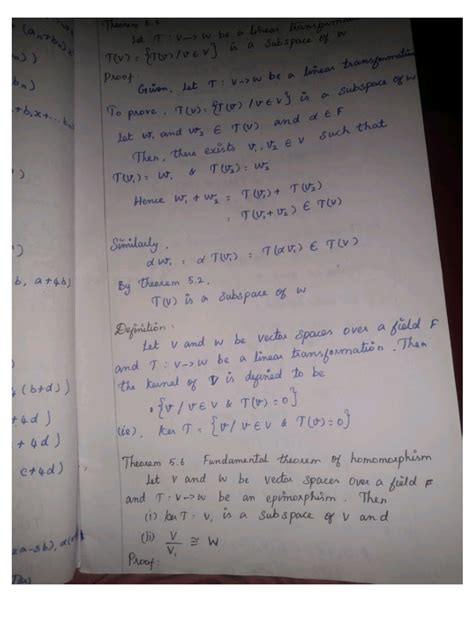 (aₙ+bₙ)
Theorem 5.
Let T : V → W be a linear transformation
T(V) = {T(v) / v ∈ V} is a subspace of W
Proof:
Given, Let T : V → W be a linear transformation
To prove. T(V) = {T(v) / v ∈ V} is a subspace of W
Let w₁ and w₂ ∈ T(V) and α ∈ F
Then, there exists v₁, v₂ ∈ V such that
T(v₁) = w₁ & T(v₂) = w₂
Hence w₁ + w₂ = T(v₁) + T(v₂)
= T(v₁+v₂) ∈ T(V)
Similarly,
αw₁ = αT(v₁) = T(αv₁) ∈ T(V)
By Theorem 5.2.
T(V) is a subspace of W
Definition:
Let V and W be vector spaces over a field F
and T : V → W be a linear transformation. Then
the kernel of T is defined to be
{v / v ∈ V & T(v) = 0}
(ie), ker T = {v / v ∈ V & T(v) = 0}
Theorem 5.6 Fundamental theorem of homomorphism
Let V and W be vector spaces over a field F
and T : V → W be an epimorphism. Then
(i) ker T = V₁ is a subspace of V and
(ii) V/V₁ ≅ W
Proof:
b, a+4b)
(b+d)
+4d)
+4d)
c+4d)